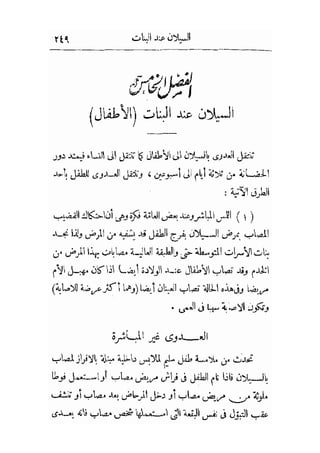 السيلان عند البنات ٢٤٩
الفصل الخامس
السيلان عند البنات (الأطفال)
تنتقل العدوى بالسيلان الى الأطفال كما تنتقل الى النساء فيمتد دور
الحضانة من ثلاثة أيام الى أسبوعين ، وتنتقل العدوى للطفل بأحد
الطرق الآتية :
( ١ ) اللمس المباشر وعند بعض العائة فكرة وهى أن احتكاك القضيب
المصاب بمرض السيلان بفرج الطفل قد يشفيه من المرض ولذا نجد
بنات الأسرات المتوسطة حتى والطبقة العالية مصابات بهذا المرض من
الخدم وقد تصاب الأطفال عند الولادة أيضا اذا كان مهبل الأم
مريضا وفى هذه الحالة تصاب العينان أيضا (وهما أكثر عرضة للاصابة)
وتكون الاصابة سببا فى العمى .
العدوى غير المباشرة
تحدث من ملامسة طفل سليم لملابس داخلية مبتلة بالافراز لمصاب
بالسيلان فاذا نام الطفل فى فراش مريض مصاب أو استعمل فوطا
ملوثة من مريض مصاب أو دخل المرحاض بعد مصاب أو تنشف
عقب التبول فى نفس البقعة التى استعملها شخص مصاب فانه يعدى